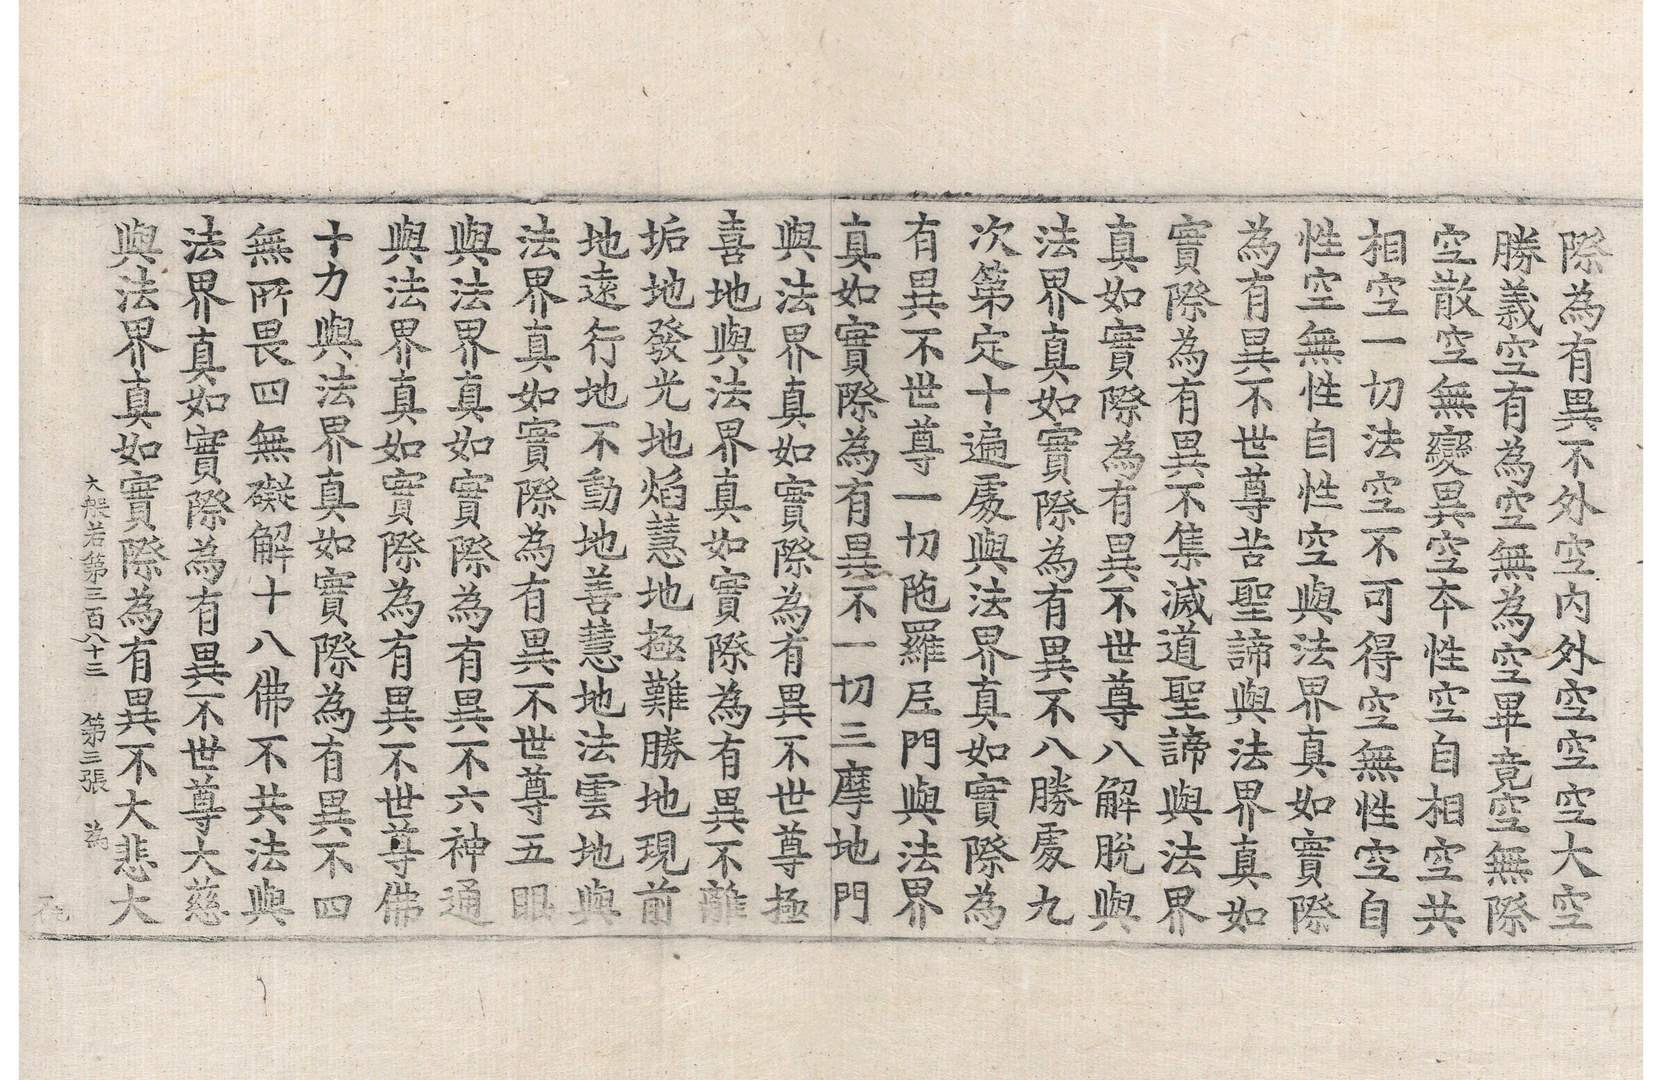 際為有異不外空內外空空空大空
勝義空有為空無為空畢竟空無際
空散空無變異空本性空自相空共
相空一切法空不可得空無性空自
性空無性自性空與法界真如實際
為有異不世尊苦聖諦與法界真如
實際為有異不集滅道聖諦與法界
真如實際為有異不世尊八解脫與
法界真如實際為有異不八勝處九
次第定十遍處與法界真如實際為
有異不世尊一切陁羅尼門與法界
真如實際為有異不一切三摩地門
與法界真如實際為有異不世尊極
喜地與法界真如實際為有異不離
垢地發光地焰慧地極難勝地現前
地遠行地不動地善慧地法雲地與
法界真如實際為有異不世尊五眼
與法界真如實際為有異不六神通
與法界真如實際為有異不世尊佛
十力與法界真如實際為有異不四
無所畏四無礙解十八佛不共法與
法界真如實際為有異不世尊大慈
與法界真如實際為有異不大悲大
大般若第三百八十三　第三張　為